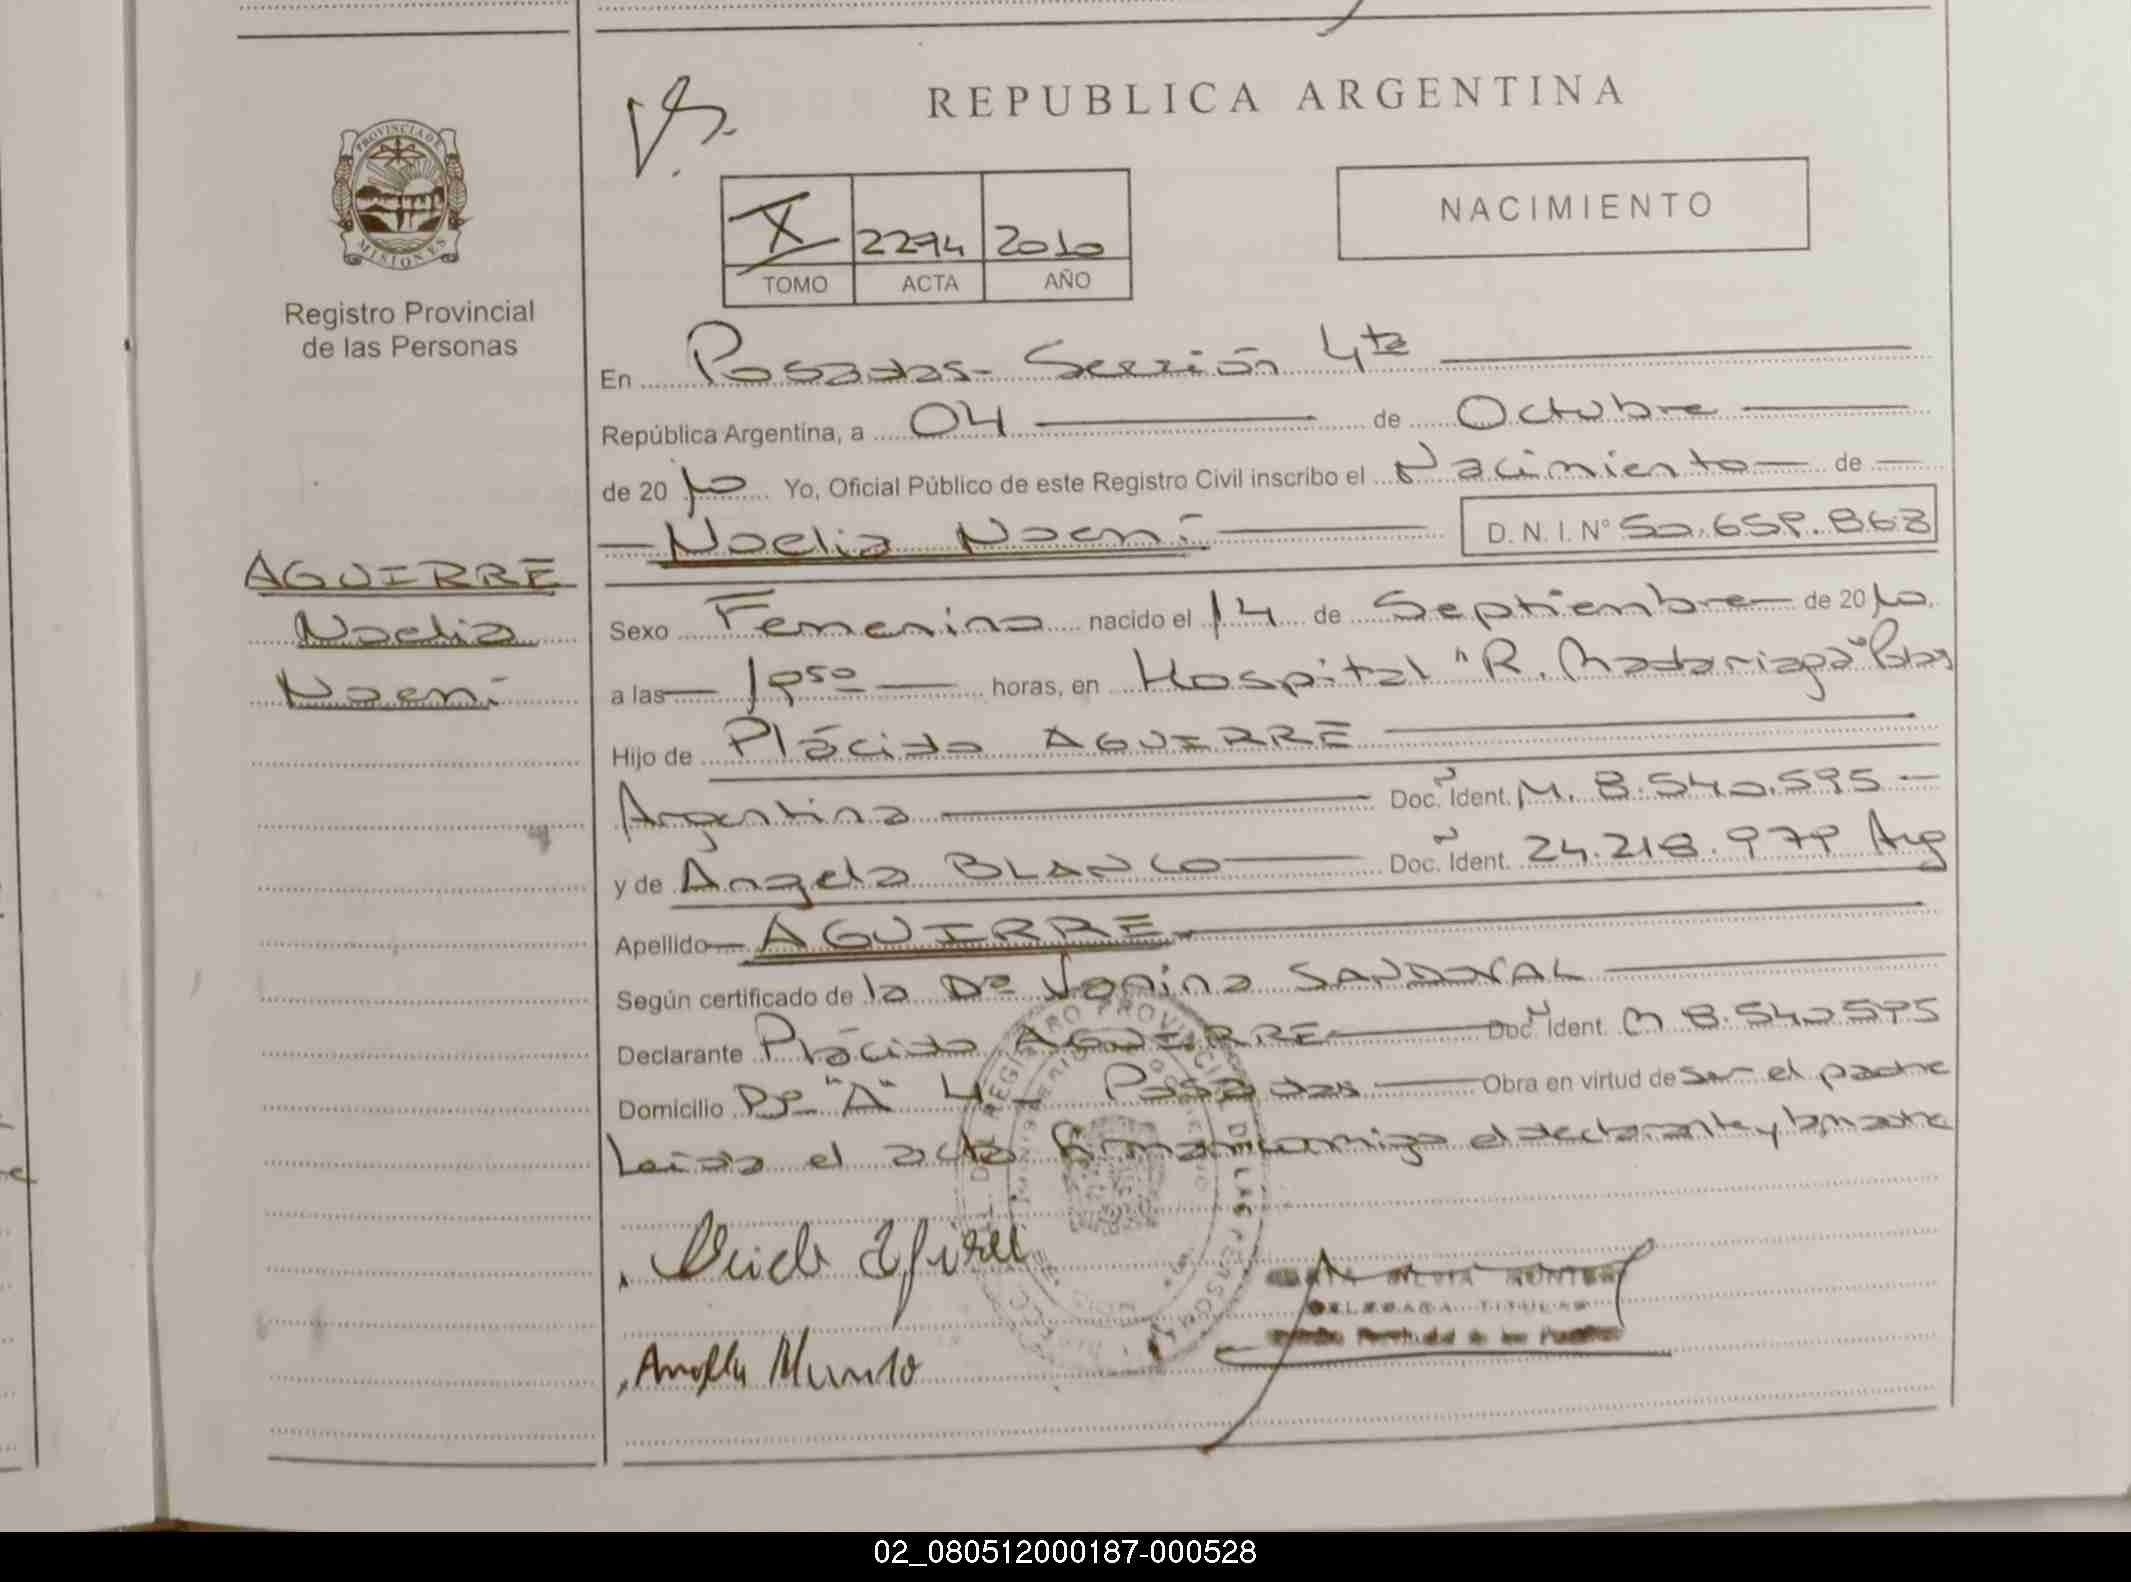 REPUBLICA ARGENTINA
PROVINCIA DE
MISIONES
Registro Provincial
de las Personas
X 2294 2010
TOMO ACTA AÑO
NACIMIENTO
En Posadas- Sección 4ta
República Argentina, a 04 de Octubre
de 2010 Yo, Oficial Público de este Registro Civil inscribo el Nacimiento de
Noelia Noemí D. N. I. Nº 50.659.868
AGUIRRE
Noelia
Noemí
Sexo Femenino nacido el 14 de Septiembre de 2010
a las 19 50 horas, en Hospital "R. Madariaga" Pdas
Hijo de Plácido AGUIRRE
Argentino Doc. Ident. M. 8.540.595
y de Angela BLANCO Doc. Ident. 24.218.979 Arg
Apellido AGUIRRE
Según certificado de la Dra SANDOVAL
Declarante Plácido AGUIRRE Doc. Ident. M 8.540595
Domicilio "A" 4 Posadas Obra en virtud de ser el padre
Leída el acta firman conmigo el declarante y la madre
DELEGADA TITULAR
02_080512000187-000528